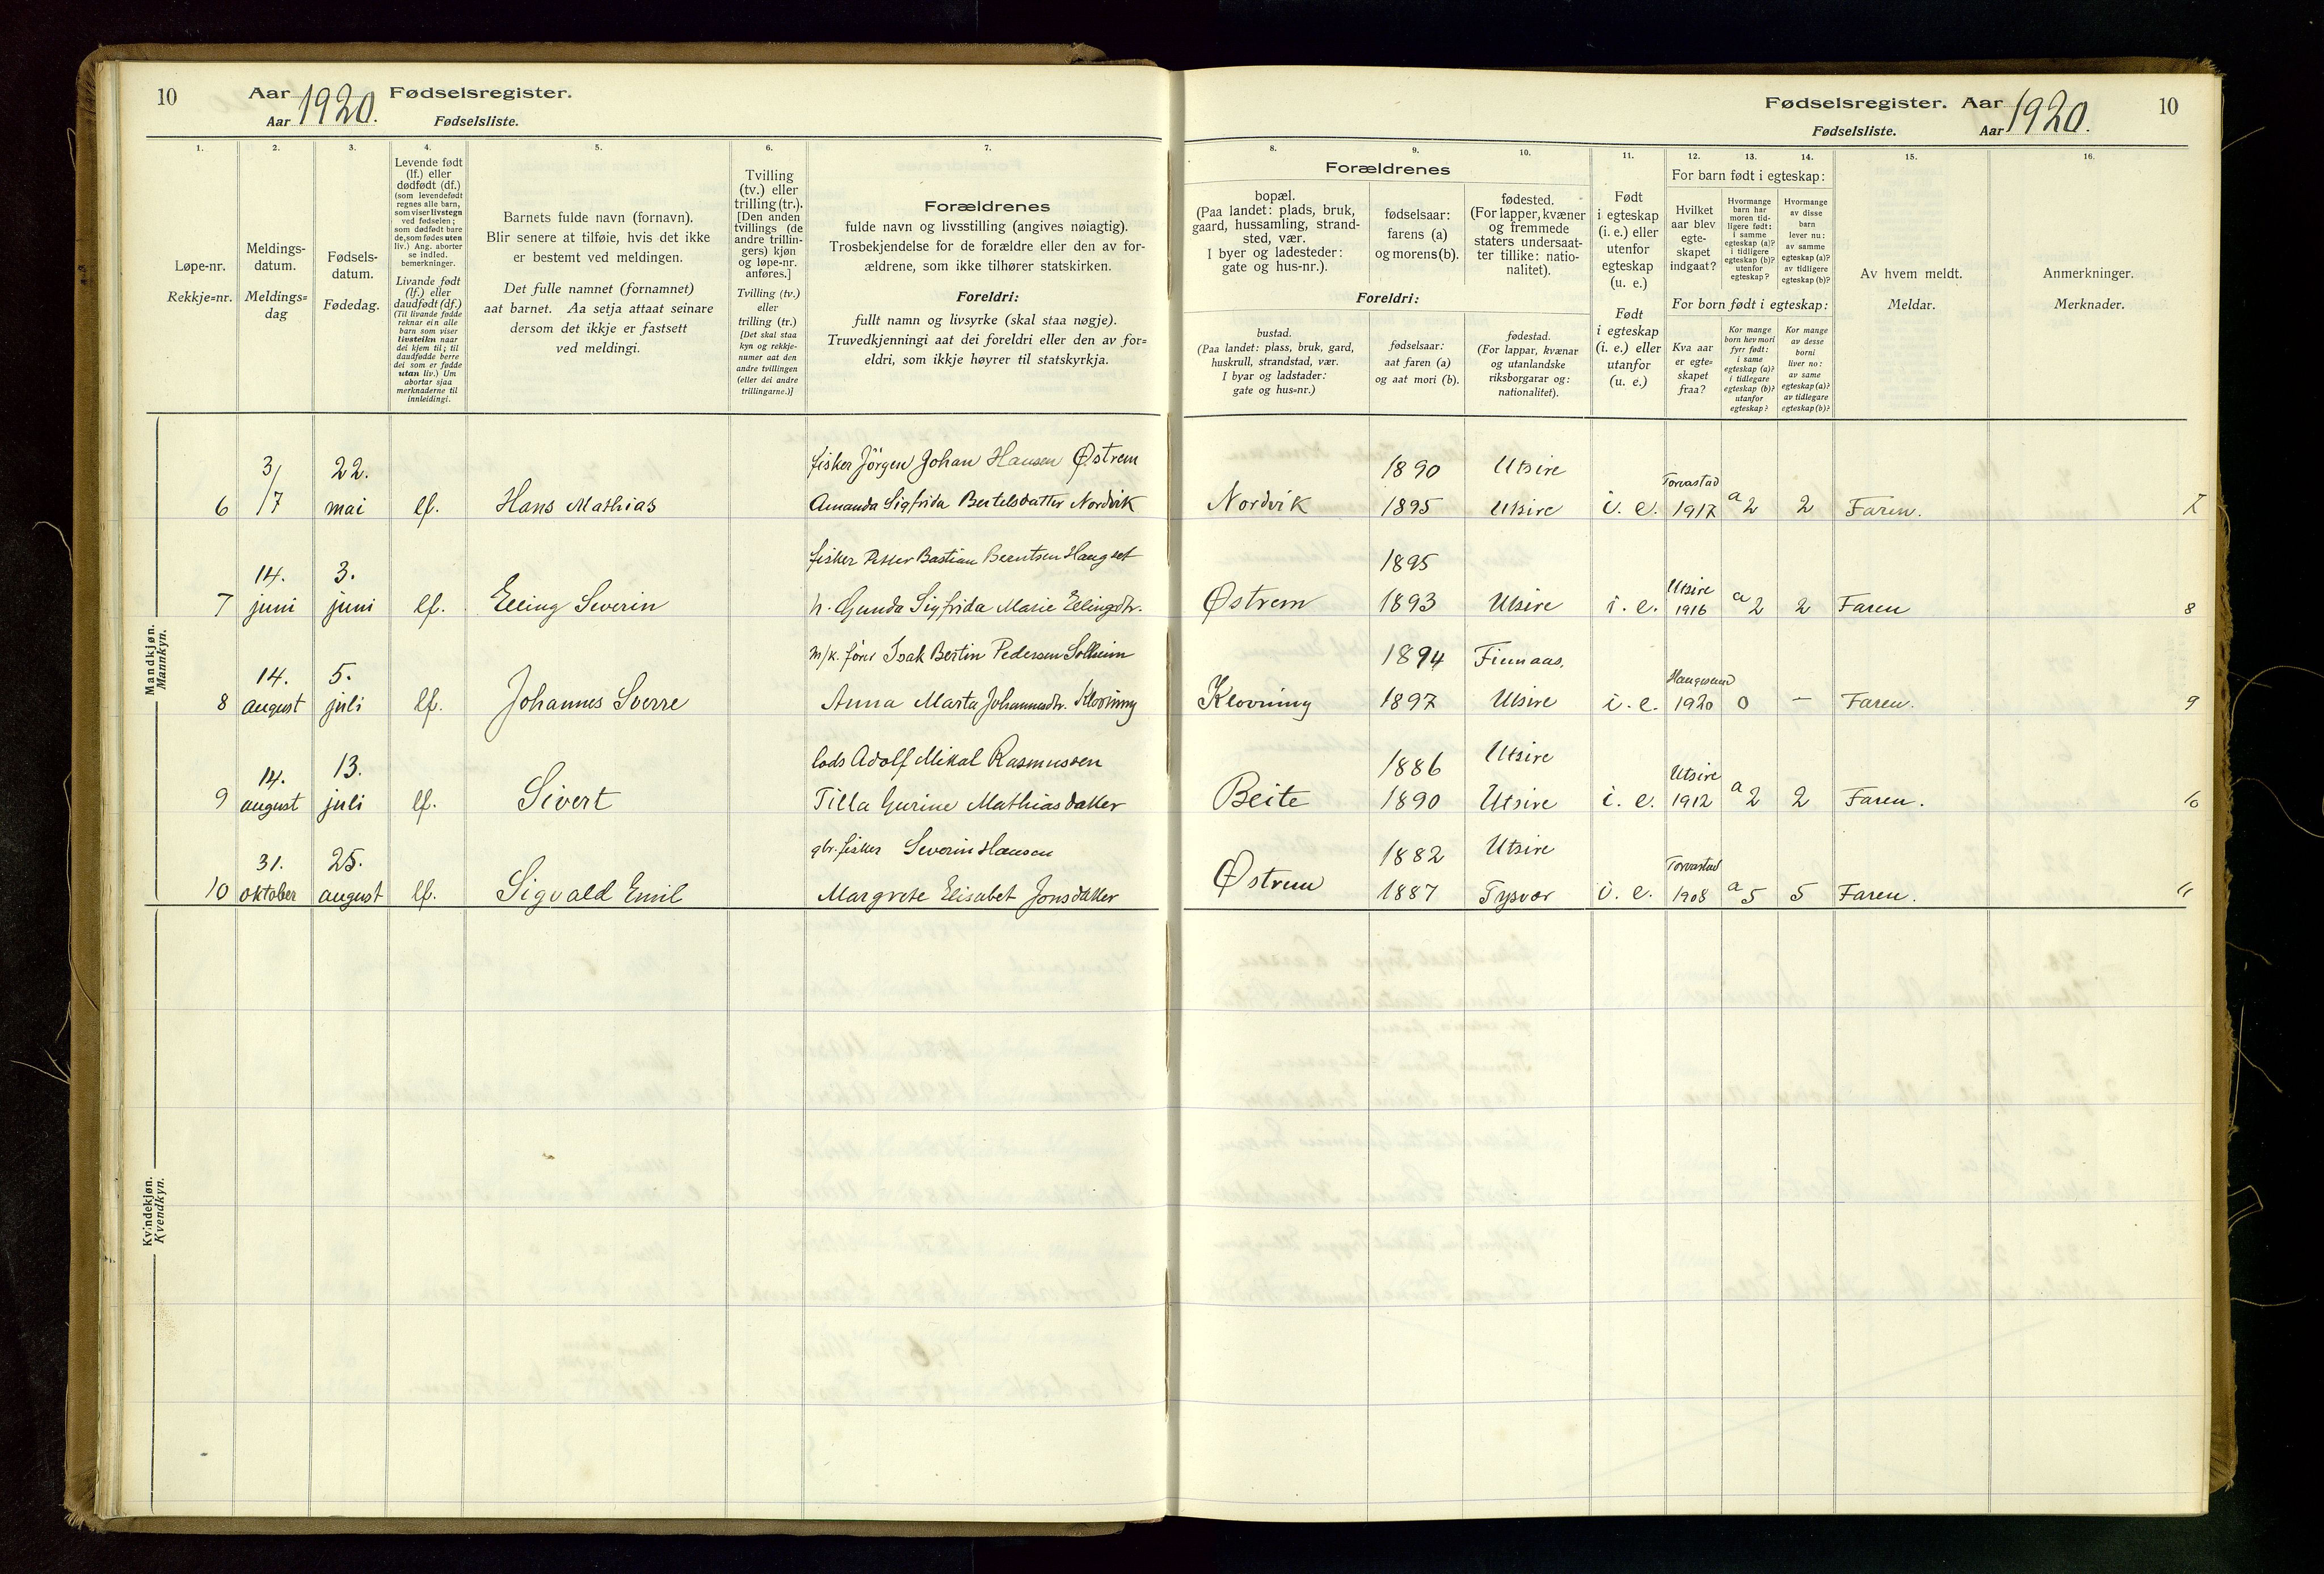 10
Aar 1920. Fødselsregister.
Aar Fødselsliste.
Fødselsregister. Aar 1920. 10
Fødselsliste. Aar
1. 2. 3. 4. 5. 6. 7. 8. 9. 10. 11. 12. 13. 14. 15. 16.
Løpe-nr.
Rekkje=nr.
Meldings-
datum.
Meldings=
dag
Fødsels-
datum.
Fødedag.
Levende født
(lf.) eller
dødfødt (df.)
(som levendefødt
regnes alle barn,
som viser livstegn
ved fødselen;
som dødfødt bare
de, som fødes uten
liv.) Ang. aborter
se indled.
bemerkninger.
Livande født
(lf.) eller
daudfødt (df.)
(Til livande fødde
reknar ein alle
barn som viser
livsteikn naar
dei kjem til; til
daudfødde berre
dei som er fødde
utan liv.) Um
abortar sjaa
merknaderne til
innleidingi.
Barnets fulde navn (fornavn).
Blir senere at tilføie, hvis det ikke
er bestemt ved meldingen.
Det fulle namnet (fornamnet)
aat barnet. Aa setja attaat seinare
dersom det ikkje er fastsett
ved meldingi.
Tvilling
(tv.) eller
trilling (tr.).
[Den anden
tvillings (de
andre trillin-
gers) kjøn
og løpe-nr.
anføres.]
Tvilling (tv.)
eller
trilling (tr.)
[Det skal staa
kyn og rekkje-
numer aat den
andre tvillingen
(eller dei andre
trillingarne.)]
Forældrenes
fulde navn og livsstilling (angives nøiagtig).
Trosbekjendelse for de forældre eller den av for-
ældrene, som ikke tilhører statskirken.
Foreldri:
fullt namn og livsyrke (skal staa nøgje).
Truvedkjenningi aat dei foreldri eller den av for=
eldri, som ikkje høyrer til statskyrkja.
Forældrenes
bopæl.
(Paa landet: plads, bruk,
gaard, hussamling, strand-
sted, vær.
I byer og ladesteder:
gate og hus-nr.).
fødselsaar:
farens (a)
og morens (b).
fødested.
(For lapper, kvæner
og fremmede
staters undersaat-
ter tillike: natio-
nalitet).
Foreldri:
bustad.
(Paa landet: plass, bruk, gard,
huskrull, strandstad, vær.
I byar og ladstader:
gate og hus=nr.)
fødselsaar:
aat faren (a)
og aat mori (b).
fødestad.
(For lappar, kvænar
og utanlandske
riksborgarar og:
nationalitet).
Født
i egteskap
(i. e.) eller
utenfor
egteskap
(u. e.)
Født
i egteskap
(i. e.) eller
utanfor
(u. e.)
For barn født i egteskap:
Hvilket
aar blev
egte-
skapet
indgaat?
Hvormange
barn har
moren tid-
ligere født:
i samme
egteskap (a)?
i tidligere
egteskap (b)?
utenfor
egteskap?
Hvormange
av disse
barn
lever nu:
av samme
egteskap (a)?
av tidligere
egteskap (b)?
For born født i egteskap:
Kva aar
er egte=
skapet
fraa?
Kor mange
born hev mori
fyrr født:
i same
egteskap (a)?
i tidlegare
egteskap (b)?
utanfor
egteskap?
Kor mange
av desse
borni
liver no:
av same
egteskap (a)?
av tidlegare
egteskap (b)?
Av hvem meldt.
Meldar.
Anmerkninger.
Merknader.
Mandkjøn.
Mannkyn.
3/ 22. fisker Jörgen Johan Hansen Østrem 1890 Utsire Torvastad
6 /7 mai lf. Hans Mathias Amanda Sigfrida Bertelsdatter Nordvik Nordvik 1895 Utsire i. e. 1917 a 2 2 Faren. 7
14. 3. fisker Petter Bastian Berntsen 1895 Utsire
7 juni juni lf. Elling Severin h. Gunda Sigfrida Marie Ellingsdtr. Østrem 1893 Utsire i. e. 1916 a 2 2 Faren 8
14. 5. m/k. fører Isak Bertin Pedersen Solheim 1894 Finnaas. Haugesund
8 august juli lf. Johannes Sverre Anna Marta Johannesdtr. Klovning Klovning 1897 Utsire i. e. 1920 0 - Faren. 9
14. 13. lods Adolf Mikal Rasmussen 1886 Utsire Utsire
9 august juli lf. Sivert Tilla Gurine Mathiasdatter Beite 1890 Utsire i. e. 1912 a 2 2 Faren. 10
31. 25. gbr. fisker Severin Hansen 1882 Utsire Torvastad
10 oktober august lf. Sigvald Emil Margrete Elisabet Jonsdatter Østrem 1887 Tysvær i. e. 1908 a 5 5 Faren. 11
Kvindekjøn.
Kvendkyn.